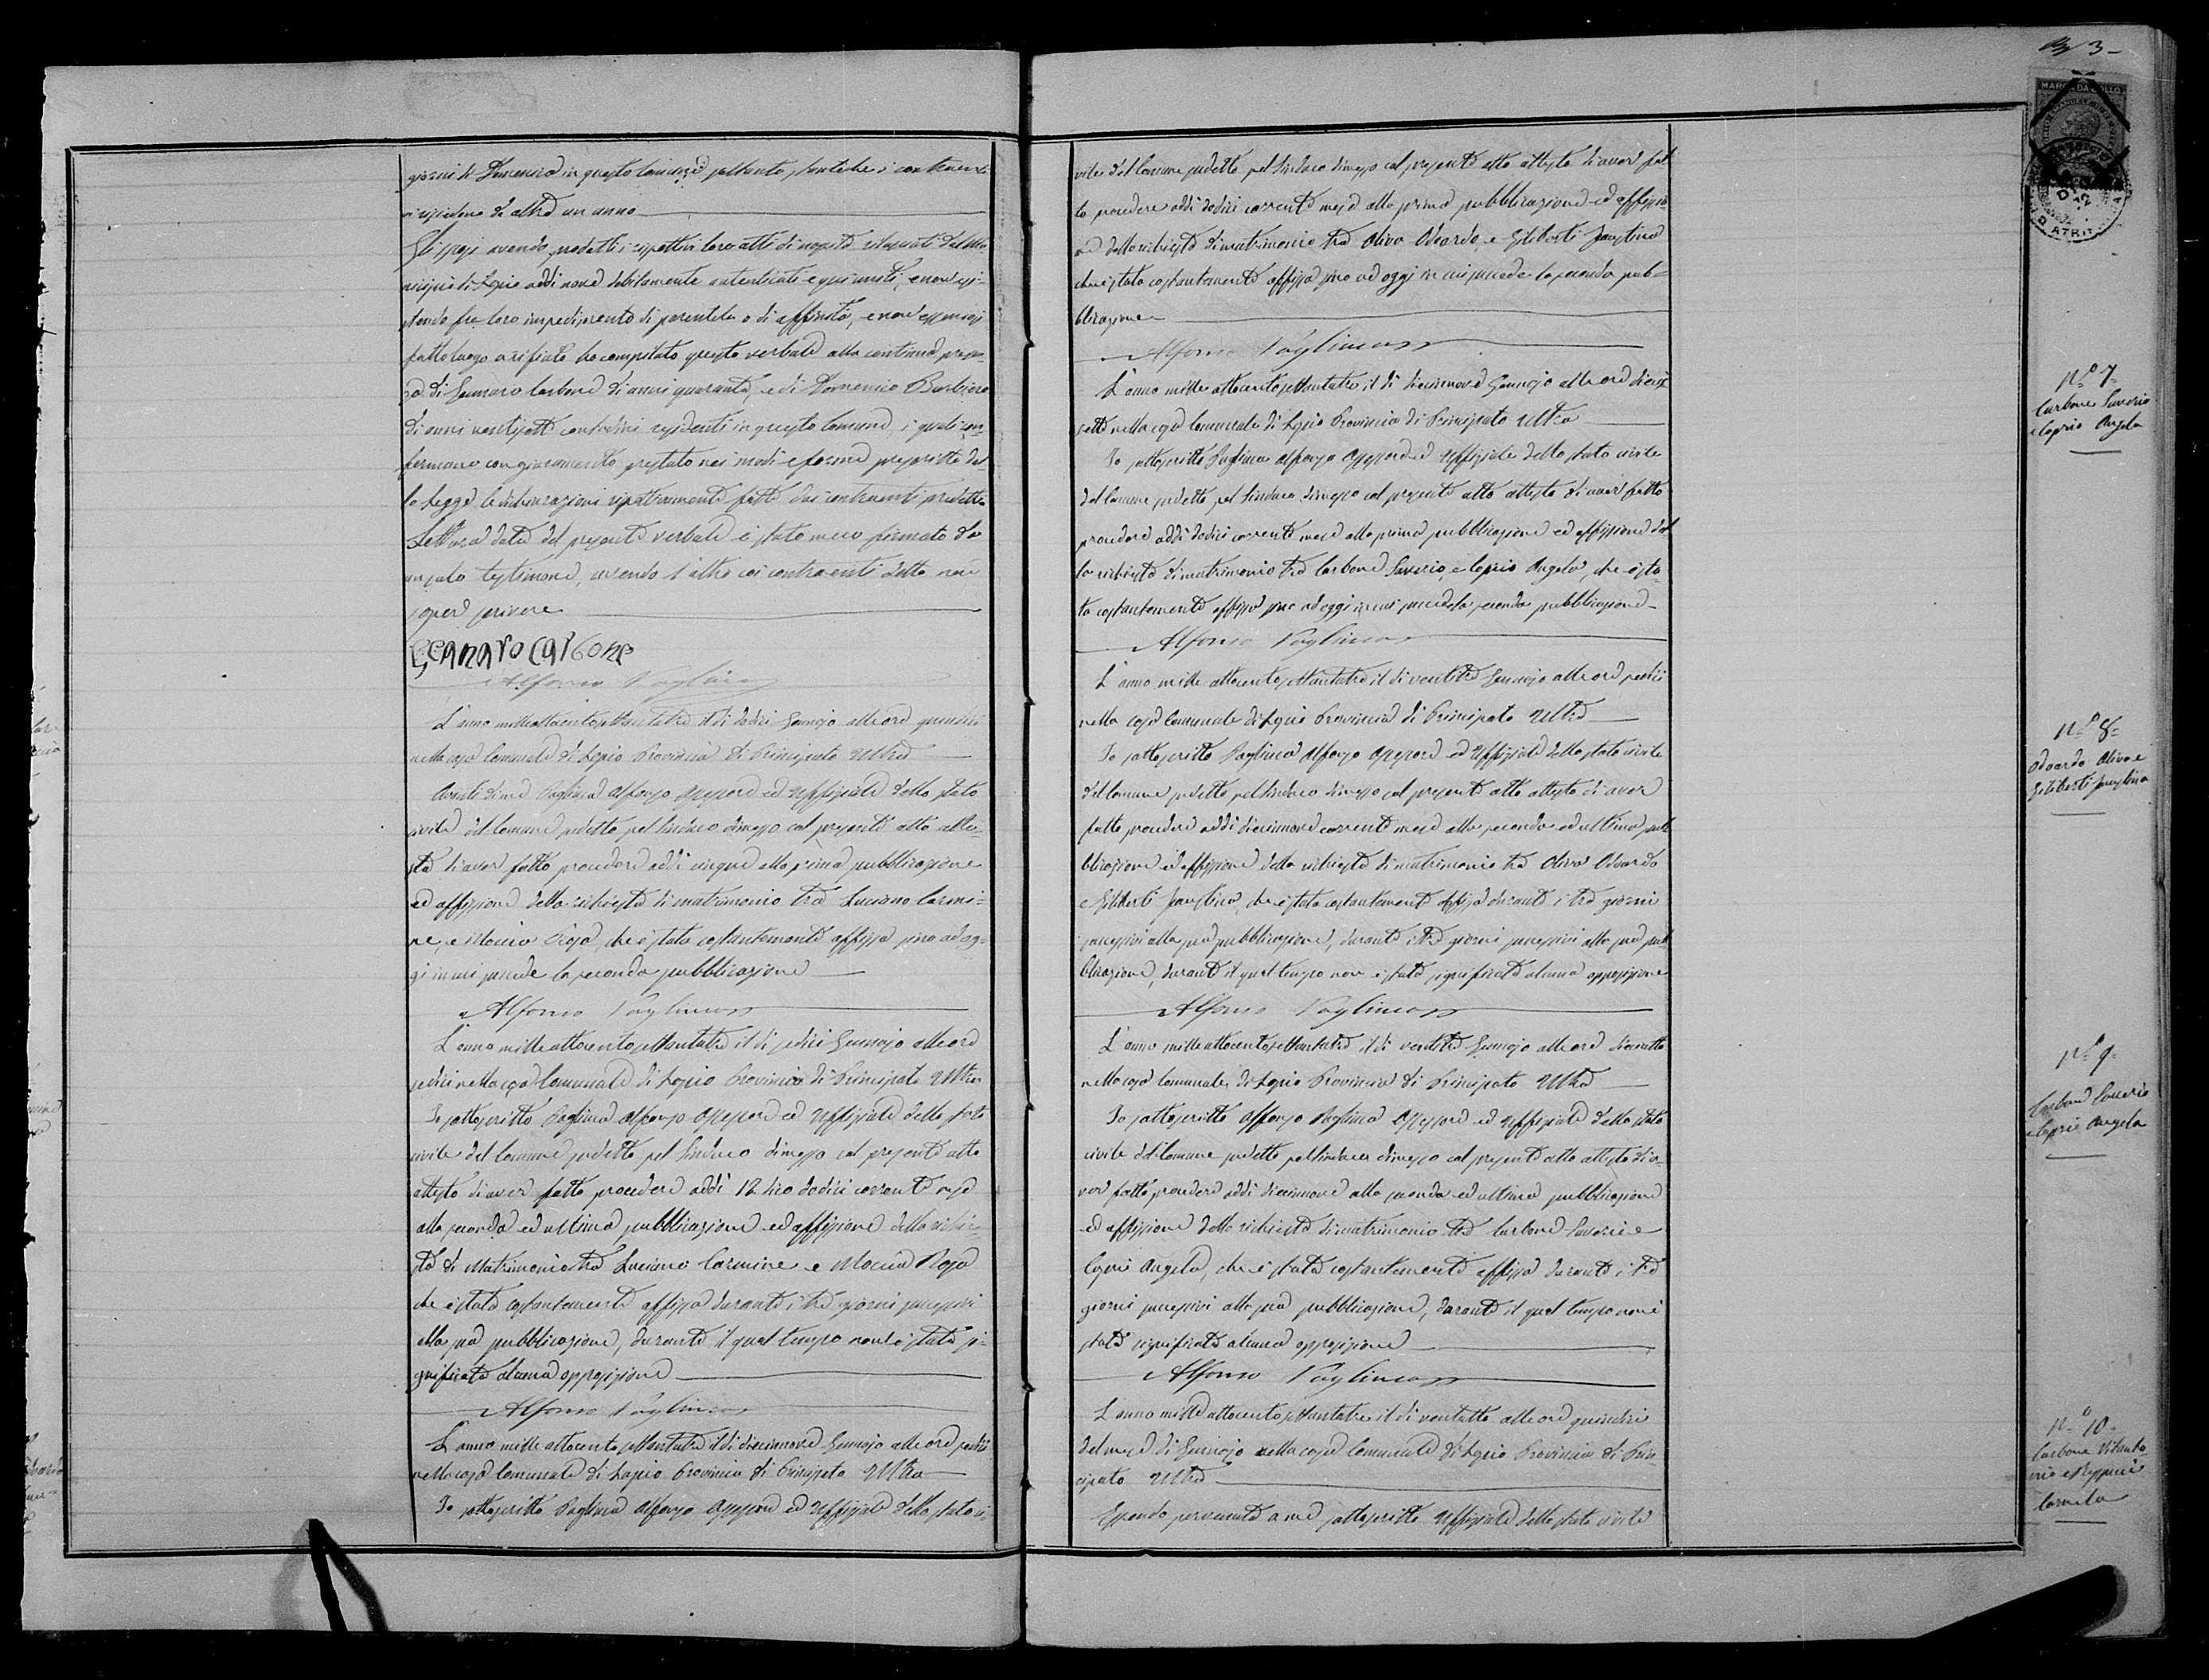 giorni di Domenica in questo Comune soltanto, stante che i contraenti
vi risiedono da oltre un anno
Gli sposi avendo prodotti i rispettivi loro atti di nascita rilasciati dal Mu-
nicipio di Lapio addì nove debitamente autenticati e e non esi-
stendo fra loro impedimento di parentela o di affinità, e non essendosi
fatto luogo a rifiuto ho compilato questo verbale alla continua presen-
za di Gennaro Carbone di anni quaranta, e di Domenico Barbiero
di anni ventisette contadini residenti in questo Comune, i quali con-
fermano con giuramento prestato nei modi e forme prescritte dal-
la Legge le dichiarazioni rispettivamente fatte dai contraenti predetti
Lettura data del presente verbale è stato meco firmato da
un solo testimone, avendo l'altro coi contraenti detto non
saper scrivere
Genaro Carbone
Alfonso Pagliuca
L'anno mille ottocento settantatre il dì dodici Gennajo alle ore quindici
nella casa Comunale di Lapio Provincia di Principato Ultra
Avanti di me Pagliuca Alfonso Assessore ed Uffiziale dello stato
civile del Comune predetto pel Sindaco dimesso col presente atto atte-
sta di aver fatto procedere addì cinque alla prima pubblicazione
ed affissione della richiesta di matrimonio tra Luciano Carmi-
ne, e Moccia Rosa, che è stata costantemente affissa sino ad og-
gi in cui succede la seconda pubblicazione
Alfonso Pagliuca
L'anno mille ottocento settantatre il dì sedici Gennajo alle ore
sedici nella casa Comunale di Lapio Provincia di Principato Ultra
Io sottoscritto Pagliuca Alfonso Assessore ed Uffiziale dello stato
civile del Comune predetto pel Sindaco dimesso col presente atto
attesto di aver fatto procedere addì 12 dico dodici corrente mese
alla seconda ed ultima pubblicazione ed affissione della richie-
sta di Matrimonio tra Luciano Carmine e Moccia Rosa
che è stata costantemente affissa durante i tre giorni successivi
alla sua pubblicazione, durante il qual tempo non è stata si-
gnificata alcuna opposizione
Alfonso Pagliuca
L'anno mille ottocento settantatre il dì diecinnove Gennajo alle ore sedici
nella casa Comunale di Lapio Provincia di Principato Ultra
Io sottoscritto Pagliuca Alfonso Assessore ed Uffiziale dello stato ci-
3
MARCA DA BOLLO
ATRIP
vile del Comune predetto pel Sindaco dimesso col presente atto attesta di aver fat-
to procedere addì dodici corrente mese alla prima pubblicazione ed affissio-
ne della richiesta di matrimonio tra Oliva Odoardo, e Giliberti Faustina
che è stata costantemente affissa sino ad oggi in cui succede la seconda pub-
blicazione
Alfonso Pagliuca
N.º 7
Carbone Saverio
e Caprio Angela
L'anno mille ottocento settantatre il dì diecinnove Gennajo alle ore dieci-
sette nella casa Comunale di Lapio Provincia di Principato Ultra
Io sottoscritto Pagliuca Alfonso Assessore ed Uffiziale dello stato civile
del Comune predetto pel Sindaco dimesso col presente atto attesta di aver fatto
procedere addì dodici corrente mese alla prima pubblicazione ed affissione del-
la richiesta di matrimonio tra Carbone Saverio, e Caprio Angela, che è sta-
ta costantemente affissa sino ad oggi in cui succede la seconda pubblicazione
Alfonso Pagliuca
N.º 8
Odoardo Oliva e
Giliberti Faustina
L'anno mille ottocento settantatre il dì ventitre Gennajo alle ore sedici
nella casa Comunale di Lapio Provincia di Principato Ultra
Io sottoscritto Pagliuca Alfonso Assessore ed Uffiziale dello stato civile
del Comune predetto pel Sindaco dimesso col presente atto attesta di aver
fatto procedere addì diecinnove corrente mese alla seconda ed ultima pub-
blicazione ed affissione della richiesta di matrimonio tra Oliva Odoardo
e Giliberti Faustina, che è stata costantemente affissa durante i tre giorni
successivi alla sua pubblicazione, durante i tre giorni successivi alla sua pub-
blicazione, durante il qual tempo non è stata significata alcuna opposizione
Alfonso Pagliuca
N.º 9
Carbone Saverio
e Caprio Angela
L'anno mille ottocento settantatre il dì ventitre Gennajo alle ore diecisette
nella casa Comunale di Lapio Provincia di Principato Ultra
Io sottoscritto Alfonso Pagliuca Assessore ed Uffiziale dello stato
civile del Comune predetto pel Sindaco dimesso col presente atto attesto di a-
ver fatto procedere addì diecinnove alla seconda ed ultima pubblicazione
ed affissione della richiesta di matrimonio tra Carbone Saverio e
Caprio Angela, che è stata costantemente affissa durante i tre
giorni successivi alla sua pubblicazione, durante il qual tempo non è
stata significata alcuna opposizione
Alfonso Pagliuca
N.º 10
Carbone
Carmela
L'anno mille ottocento settantatre il dì ventotto alle ore quindici
del mese di Gennajo nella casa Comunale di Lapio Provincia di Prin-
cipato Ultra
Essendo pervenuta a me sottoscritto Uffiziale dello stato civile